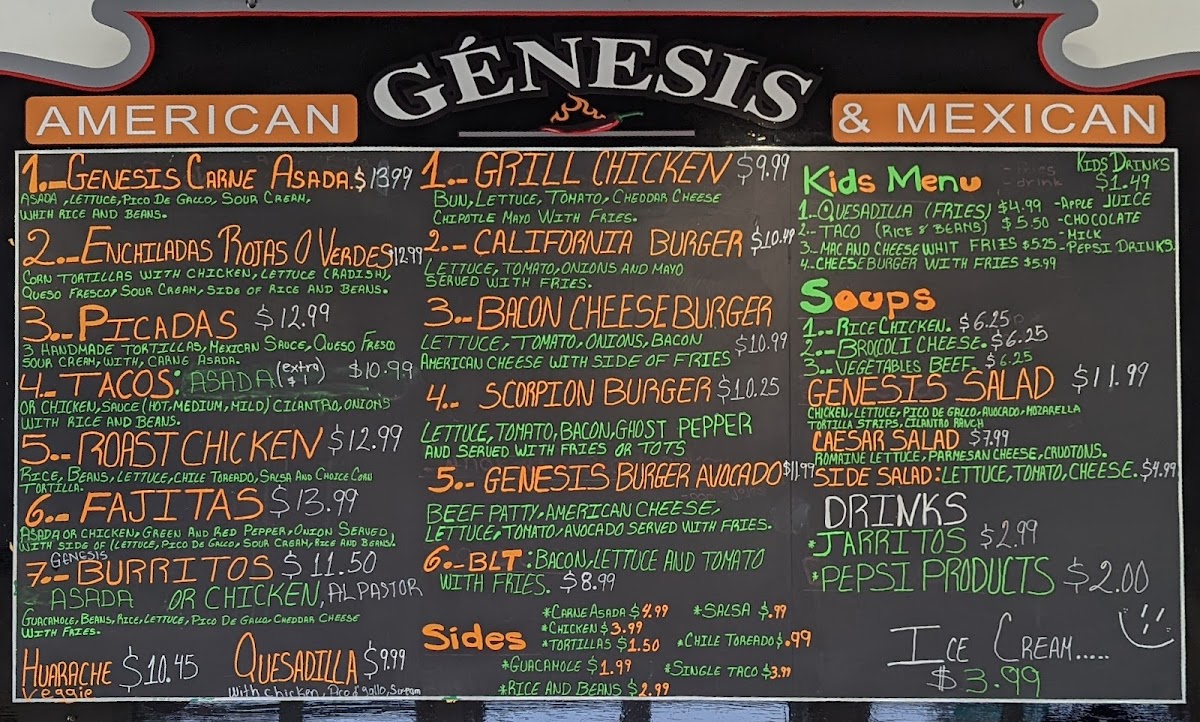 GÉNESIS
AMERICAN
& MEXICAN
1.- GENESIS CARNE ASADA. $13.99
ASADA, LETTUCE, PICO DE GALLO, SOUR CREAM,
WHIH RICE AND BEANS.
2.- ENCHILADAS ROJAS O VERDES $12.99
CORN TORTILLAS WITH CHICKEN, LETTUCE (RADISH),
QUESO FRESCO, SOUR CREAM, SIDE OF RICE AND BEANS.
3.- PICADAS $12.99
3 HANDMADE TORTILLAS, MEXICAN SAUCE, QUESO FRESCO
SOUR CREAM, WITH, CARNE ASADA.
4.- TACOS: ASADA (extra $1) $10.99
OR CHICKEN, SAUCE (HOT, MEDIUM, MILD) CILANTRO, ONIONS
WITH RICE AND BEANS.
5.- ROAST CHICKEN $12.99
RICE, BEANS, LETTUCE, CHILE TOREADO, SALSA AND CHOICE CORN
TORTILLA.
6.- FAJITAS $13.99
ASADA OR CHICKEN, GREEN AND RED PEPPER, ONION SERVED
WITH SIDE OF (LETTUCE, PICO DE GALLO, SOUR CREAM, RICE AND BEANS).
GENESIS
7.- BURRITOS $11.50
- ASADA OR CHICKEN, AL PASTOR
GUACAMOLE, BEANS, RICE, LETTUCE, PICO DE GALLO, CHEDDAR CHEESE
WITH FRIES.
HUARACHE $10.45
Veggie
QUESADILLA $9.99
With chicken, Pico d' gallo, Scream
1.- GRILL CHICKEN $9.99
BUN, LETTUCE, TOMATO, CHEDDAR CHEESE
CHIPOTLE MAYO WITH FRIES.
2.- CALIFORNIA BURGER $10.49
LETTUCE, TOMATO, ONIONS AND MAYO
SERVED WITH FRIES.
3.- BACON CHEESEBURGER
LETTUCE, TOMATO, ONIONS, BACON $10.99
AMERICAN CHEESE WITH SIDE OF FRIES
4.- SCORPION BURGER $10.25
LETTUCE, TOMATO, BACON, GHOST PEPPER
AND SERVED WITH FRIES OR TOTS
5.- GENESIS BURGER AVOCADO $11.99
BEEF PATTY, AMERICAN CHEESE,
LETTUCE, TOMATO, AVOCADO SERVED WITH FRIES.
6.- BLT: BACON, LETTUCE AND TOMATO
WITH FRIES. $8.99
Sides
*CARNE ASADA $4.99
*CHICKEN $3.99
*TORTILLAS $1.50
*GUACAMOLE $1.99
*RICE AND BEANS $2.99
*SALSA $.99
*CHILE TOREADO $.99
*SINGLE TACO $3.99
Kids Menu
1.- QUESADILLA (FRIES) $4.99
2.- TACO (RICE & BEANS) $5.50
3.- MAC AND CHEESE WHIT FRIES $5.25
4.- CHEESEBURGER WITH FRIES $5.99
KIDS DRINKS
$1.49
-APPLE JUICE
-CHOCOLATE
-MILK
-PEPSI DRINKS.
Soups
1.- RICE CHICKEN. $6.25
2.- BROCCOLI CHEESE. $6.25
3.- VEGETABLES BEEF. $6.25
GENESIS SALAD $11.99
CHICKEN, LETTUCE, PICO DE GALLO, AVOCADO, MOZARELLA
TORTILLA STRIPS, CILANTRO RANCH
CAESAR SALAD $7.99
ROMAINE LETTUCE, PARMESAN CHEESE, CRUOTONS.
SIDE SALAD: LETTUCE, TOMATO, CHEESE. $4.99
DRINKS
*JARRITOS $2.99
*PEPSI PRODUCTS $2.00
ICE CREAM.....
$3.99